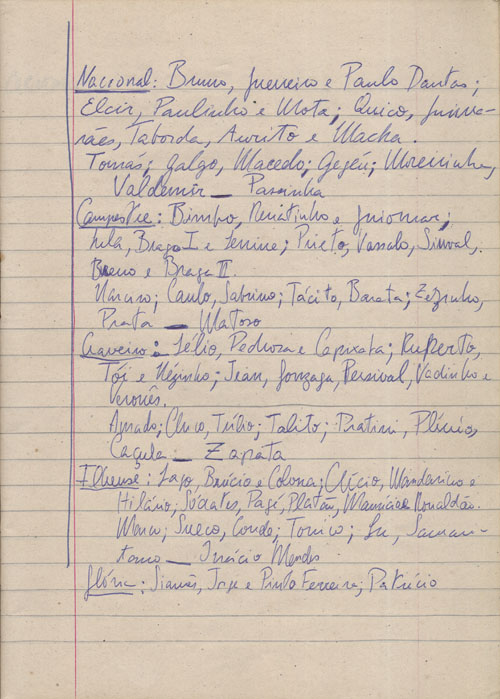 Nacional: Bruno, Guerreiro e Paulo Dantas;
Elcir, Paulinho e Mota; Quico, Guima-
rães, Taborda, Aurito e Macha.
Tomas; Galgo, Macedo; Gegeu; Moreirinha,
Valdemir — Passinha
Campestre: Bimbo, Renatinho e Guiomar;
Lula, Braga I e Lenine; Prieto, Vassalo, Sinval,
Breno e Braga II.
Narciso; Canto, Sabrino; Tácito, Barata; Zezinho,
Prata — Matoso
Craveiro: Lélio, Pedroza e Capixata; Ruperto,
Tói e Nézinho; Jean, Gonzaga, Persival, Vadinho e
Veronês.
Agnado; Chico, Tulho; Talito; Pratini, Plínio,
Caçula — Zapata
Ilhense: Lago, Brúcio e Colona; Clício, Mandarino e
Hilário; Sócrates, Pagé, Platão, Maurício e Ronaldão.
Marco; Sueco, Conde; Tonico; Lu, Saman-
— Inácio Mendes
Glória: Siamês, Jorge e Pinto Ferreira; Patrício